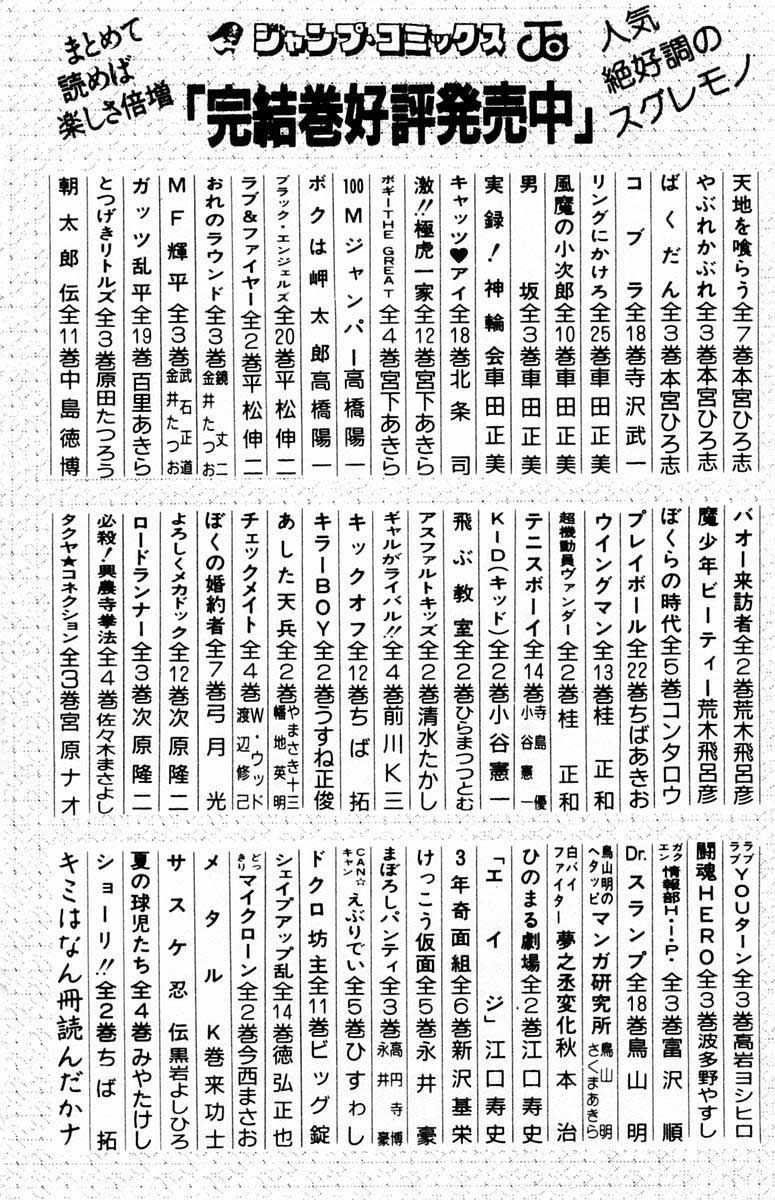 まとめて
読めば
楽しさ倍増
ジャンプ・コミックス
人気
絶好調の
スグレモノ
「完結巻好評発売中」
天地を喰らう全7巻本宮ひろ志
やぶれかぶれ全3巻本宮ひろ志
ばくだん全3巻本宮ひろ志
コブラ全18巻寺沢武一
リングにかけろ全25巻車田正美
風魔の小次郎全10巻車田正美
男坂全3巻車田正美
実録!神輪会車田正美
キャッツ♥アイ全18巻北条司
激!!極虎一家全12巻宮下あきら
ボギーTHE GREAT全4巻宮下あきら
100Mジャンパー高橋陽一
ボクは岬太郎高橋陽一
ブラック・エンジェルズ全20巻平松伸二
ラブ&ファイヤー全2巻平松伸二
おれのラウンド全3巻鏡丈二 金井たつお
MF輝平全3巻武石正道 金井たつお
ガッツ乱平全19巻百里あきら
とつげきリトルズ全3巻原田たつろう
朝太郎伝全11巻中島徳博
バオー来訪者全2巻荒木飛呂彦
魔少年ビーティー荒木飛呂彦
ぼくらの時代全5巻コンタロウ
プレイボール全22巻ちばあきお
ウイングマン全13巻桂正和
超機動員ヴァンダー全2巻桂正和
テニスボーイ全14巻寺島優 小谷憲一
KID(キッド)全2巻小谷憲一
飛ぶ教室全2巻ひらまつつとむ
アスファルトキッズ全2巻清水たかし
ギャルがライバル!!全4巻前川K三
キックオフ全12巻ちば拓
キラーBOY全2巻うすね正俊
あした天兵全2巻やまさき十三 幡地英明
チェックメイト全4巻W・ウッド 渡辺修己
ぼくの婚約者全7巻弓月光
よろしくメカドック全12巻次原隆二
ロードランナー全3巻次原隆二
必殺!興農寺拳法全4巻佐々木まさよし
タクヤ☆コネクション全3巻宮原ナオ
ラブラブYOUターン全3巻高岩ヨシヒロ
闘魂HERO全3巻波多野やすし
ガクエン情報部H・I・P・全3巻富沢順
Dr.スランプ全18巻鳥山明
鳥山明のヘタッピマンガ研究所鳥山明 さくまあきら
白バイファイター夢之丞変化秋本治
ひのまる劇場全2巻江口寿史
「エイジ」江口寿史
3年奇面組全6巻新沢基栄
けっこう仮面全5巻永井豪
まぼろしパンティ全3巻高円寺博 永井豪
CAN☆キャンえぶりでい全5巻ひすわし
ドクロ坊主全11巻ビッグ錠
シェイプアップ乱全14巻徳弘正也
どっきりマイクローン全2巻今西まさお
メタルK巻来功士
サスケ忍伝黒岩よしひろ
夏の球児たち全4巻みやたけし
ショーリ!!全2巻ちば拓
キミはなん冊読んだかナ